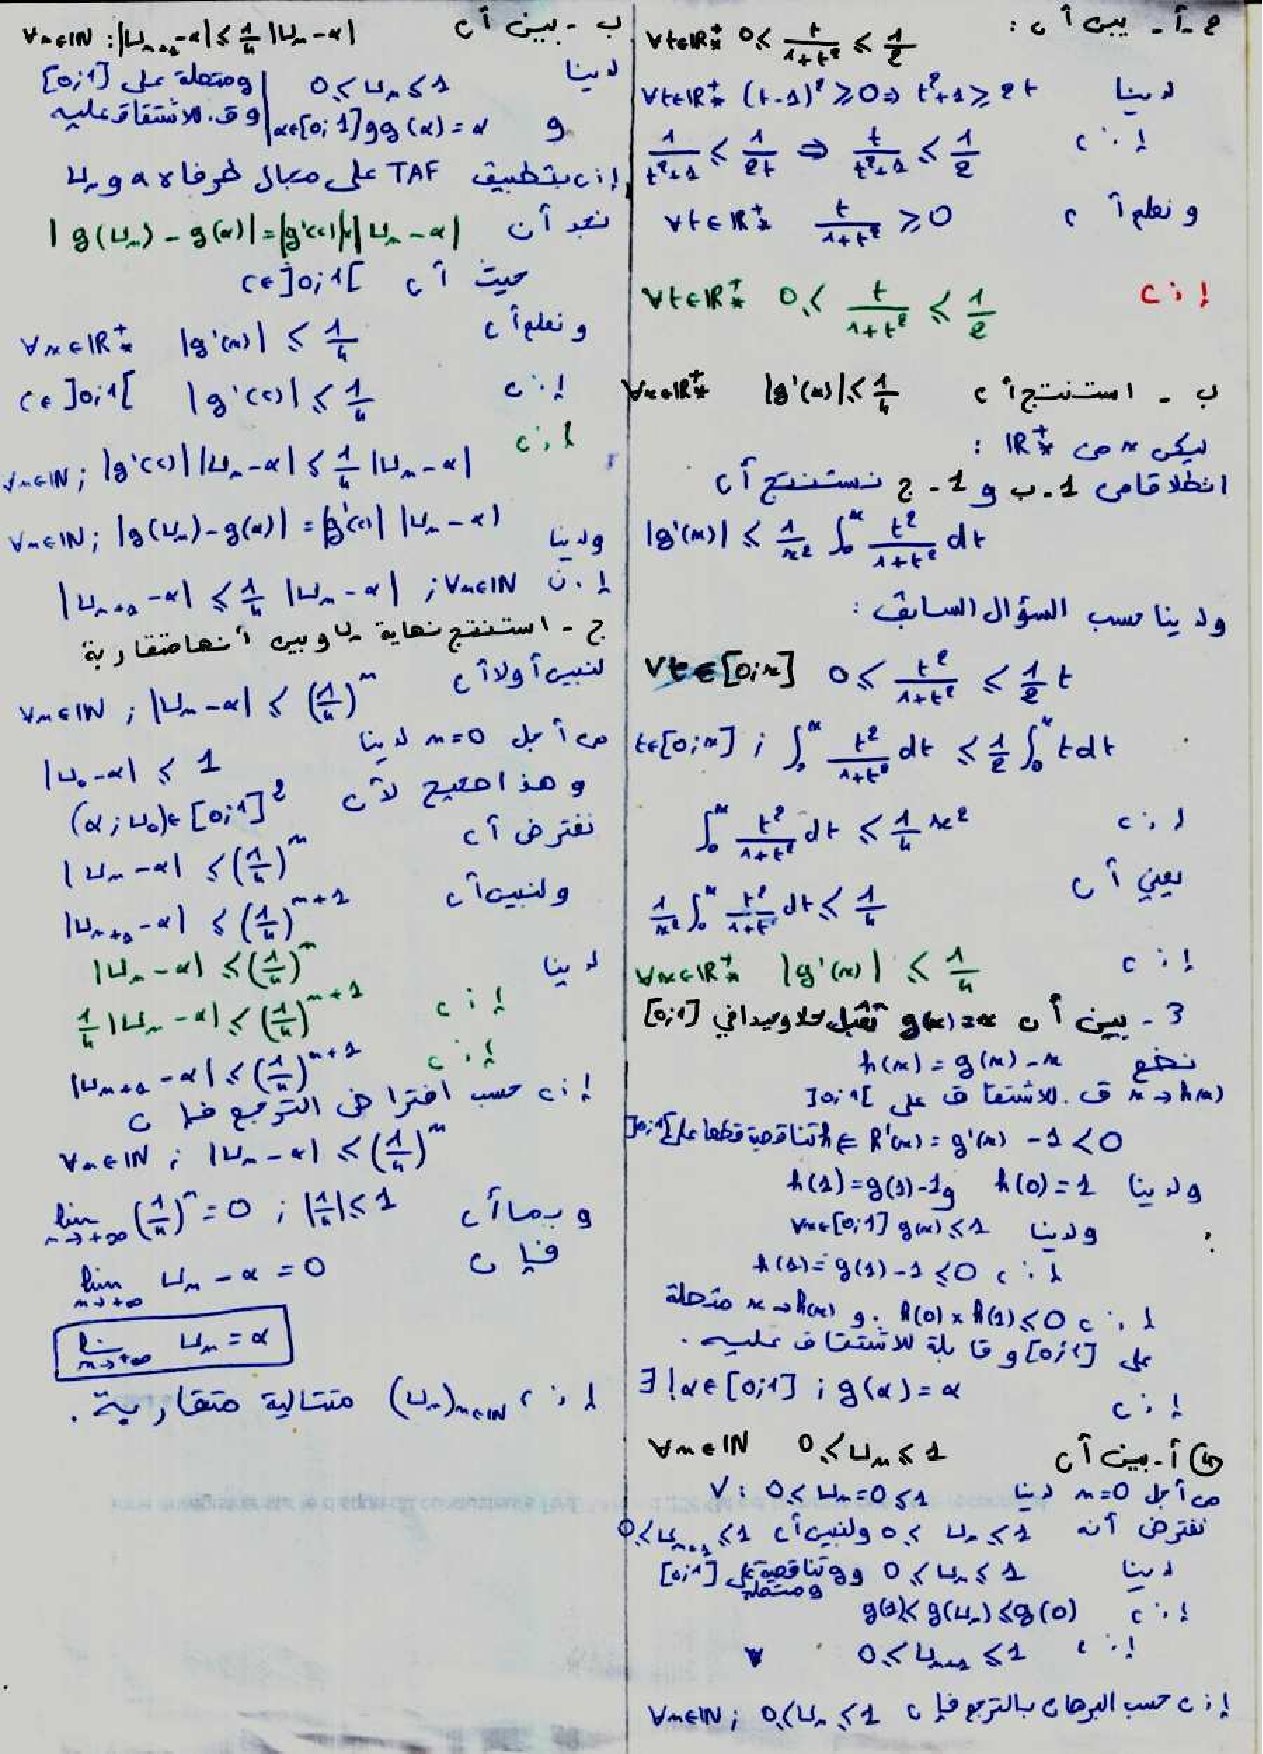 ج-أ- يبين أن : ∀t∈IR*⁺ 0≤ t/(1+t²) ≤ 1/2
لدينا ∀t∈IR*⁺ (t-1)² ≥0 ⇒ t²+1 ≥ 2t
إذن 1/(t²+1) ≤ 1/2t ⇒ t/(t²+1) ≤ 1/2
و نعلم أن ∀t∈IR*⁺ t/(1+t²) ≥0
إذن ∀t∈IR*⁺ 0≤ t/(1+t²) ≤ 1/2
ب - استنتج أن ∀x∈IR*⁺ |g'(x)| ≤ 1/4
ليكن x من IR*⁺ :
انطلاقا من 1.ب و 1-ج نستنتج أن
|g'(x)| ≤ 1/x² ∫₀ˣ t²/(1+t²) dt
ولدينا حسب السؤال السابق :
∀t∈[0;x] 0≤ t²/(1+t²) ≤ 1/2 t
t∈[0;x] ; ∫₀ˣ t²/(1+t²) dt ≤ 1/2 ∫₀ˣ t dt
إذن ∫₀ˣ t²/(1+t²) dt ≤ 1/4 x²
يعني أن
1/x² ∫₀ˣ t²/(1+t²) dt ≤ 1/4
إذن ∀x∈IR*⁺ |g'(x)| ≤ 1/4
3 - بين أن g(x)=x تقبل حلا وحيدا في [0;1]
نضع h(x) = g(x) - x
x→h(x) ق. للاشتقاق على ]0;1[
h'(x) = g'(x) -1 <0 ⇒ h تناقصية قطعا على ]0;1[
ولدينا h(0)=1 و h(1)=g(1)-1
ولدينا ∀x∈[0;1] g(x) ≤1
إذن h(1)=g(1)-1 ≤0
إذن h(0)×h(1) ≤0 و x→h(x) متصلة
على [0;1] و قابلة للاشتقاق عليه .
إذن ∃!α∈[0;1] ; g(α)=α
4) أ - بين أن ∀n∈IN 0≤Uₙ≤1
من أجل n=0 لدينا 0≤U₀=0≤1 : V
نفترض أنه 0≤Uₙ≤1 ولنبين أن 0≤Uₙ₊₁≤1
لدينا 0≤Uₙ≤1 و g تناقصية على [0;1]
ومتصلة
إذن g(1)≤g(Uₙ)≤g(0)
إذن 0≤Uₙ₊₁≤1
إذن حسب البرهان بالترجع فإن ∀n∈IN ; 0≤Uₙ≤1
ب - بين أن ∀n∈IN : |Uₙ₊₁-α| ≤ 1/4 |Uₙ-α|
لدينا 0≤Uₙ≤1 ومتصلة على [0;1]
و α∈[0;1] و g(α)=α وق. للاشتقاق عليه
إذن بتطبيق TAF على مجال طرفاه α و Uₙ
نجد أن |g(Uₙ)-g(α)| = |g'(c)||Uₙ-α|
حيث أن c∈]0;1[
و نعلم أن ∀x∈IR*⁺ |g'(x)| ≤ 1/4
إذن c∈]0;1[ |g'(c)| ≤ 1/4
إذن
∀n∈IN ; |g'(c)||Uₙ-α| ≤ 1/4 |Uₙ-α|
ولدينا ∀n∈IN ; |g(Uₙ)-g(α)| = |g'(c)| |Uₙ-α|
إذن |Uₙ₊₁-α| ≤ 1/4 |Uₙ-α| ; ∀n∈IN
ج - استنتج نهاية Uₙ وبين أنها متقاربة
لنبين أولا أن
∀n∈IN ; |Uₙ-α| ≤ (1/4)ⁿ
من أجل n=0 لدينا
|U₀-α| ≤ 1
و هذا صحيح لأن (α;U₀)∈[0;1]²
نفترض أن
|Uₙ-α| ≤ (1/4)ⁿ
ولنبين أن |Uₙ₊₁-α| ≤ (1/4)ⁿ⁺¹
لدينا |Uₙ-α| ≤ (1/4)ⁿ
إذن 1/4 |Uₙ-α| ≤ (1/4)ⁿ⁺¹
إذن |Uₙ₊₁-α| ≤ (1/4)ⁿ⁺¹
إذن حسب افتراض الترجع فإن
∀n∈IN ; |Uₙ-α| ≤ (1/4)ⁿ
و بما أن lim n→+∞ (1/4)ⁿ = 0 ; |1/4|≤1
فإن lim n→+∞ Uₙ-α = 0
lim n→+∞ Uₙ = α
إذن (Uₙ)n∈IN متتالية متقاربة .